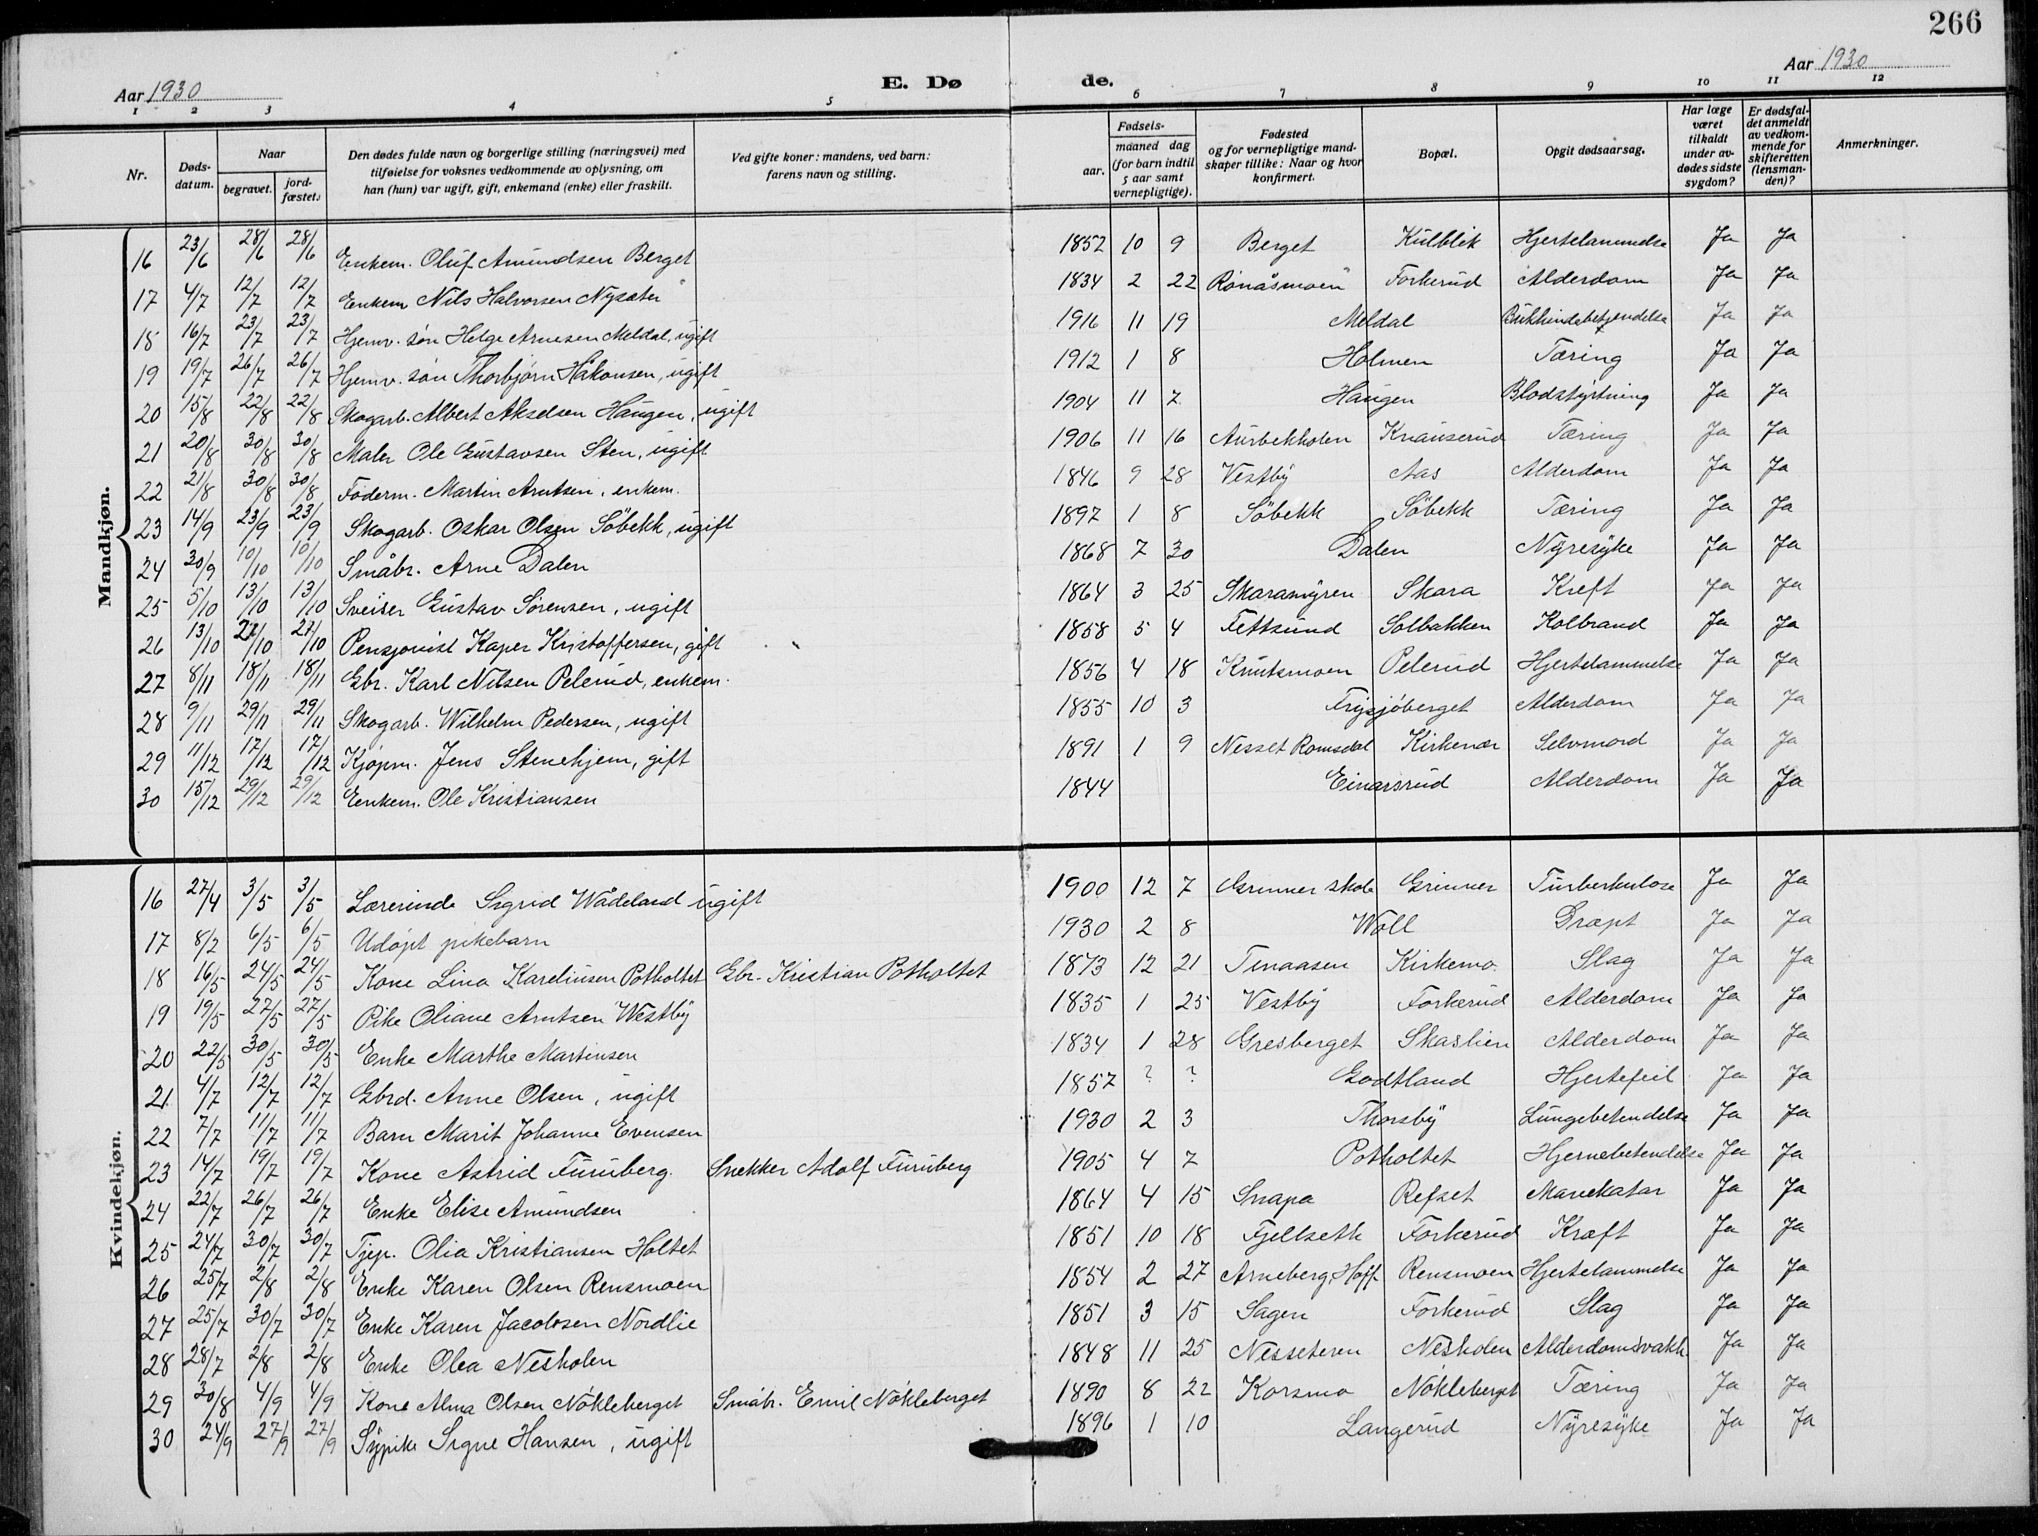 266
Aar 1930 E. Dø de. Aar 1930
1 2 3 4 5 6 7 8 9 10 11 12
Nr. Døds-datum. Naar begravet. jord-fæstet. Den dødes fulde navn og borgerlige stilling (næringsvei) med tilføielse for voksnes vedkommende av oplysning, om han (hun) var ugift, gift, enkemand (enke) eller fraskilt. Ved gifte koner: mandens, ved barn: farens navn og stilling. Fødsels- aar. maaned dag (for barn indtil 5 aar samt vernepligtige). Fødested og for vernepligtige mandskaper tillike: Naar og hvor konfirmert. Bopæl. Opgit dødsaarsag. Har læge været tilkaldt under avdødes sidste sygdom? Er dødsfaldet anmeldt av vedkommende for skifteretten (lensmanden)? Anmerkninger.
Mandkjøn.
16 23/6 28/6 28/6 Enkem. Oluf Amundsen Berget 1852 10 9 Berget Kulblik Hjertelammelse Ja Ja
17 4/7 12/7 12/7 Enkem Nils Halvorsen Nysæter 1834 2 22 Rønåsmoen Forkerud Alderdom Ja Ja
18 16/7 23/7 23/7 Hjemv. søn Helge Arnesen Meldal, ugift 1916 11 19 Meldal Bukhindebetændelse Ja Ja
19 19/7 26/7 26/7 Hjemv. søn Thorbjørn Håkonsen, ugift 1912 1 8 Holmen Tæring Ja Ja
20 15/8 22/8 22/8 Skogarb. Albert Akselsen Haugen, ugift 1904 11 7 Haugen Blodstyrtning Ja Ja
21 20/8 30/8 30/8 Maler Ole Gustavsen Sten, ugift 1906 11 16 Aurbekkolen Knauserud Tæring Ja Ja
22 21/8 30/8 30/8 Føderm. Martin Arntsen, enkem. 1846 9 28 Vestby Aas Alderdom Ja Ja
23 14/9 23/9 23/9 Skogarb. Oskar Olsen Söbekk, ugift 1897 1 8 Söbekk Söbekk Tæring Ja Ja
24 30/9 10/10 10/10 Småbr. Arne Dalen 1868 7 30 Dalen Nyresyke Ja Ja
25 5/10 13/10 13/10 Sveiser Gustav Sørensen, ugift 1864 3 25 Skaramyren Skara Kreft Ja Ja
26 13/10 27/10 27/10 Pensjonist Kaper Kristoffersen, gift 1858 5 4 Fettsund Solbakken Kolbrand Ja Ja
27 8/11 18/11 18/11 Gbr. Karl Nilsen Pelerud, enkem. 1856 4 18 Knutsmoen Pelerud Hjertelammelse Ja Ja
28 9/11 29/11 29/11 Skogarb. Wilhelm Pedersen, ugift 1855 10 3 Frysjöberget Alderdom Ja Ja
29 11/12 17/12 17/12 Kjøpm. Jens Stenehjem, gift 1891 1 9 Nesset Romsdal Kirkenær Selvmord Ja Ja
30 15/12 29/12 29/12 Eenkem. Ole Kristiansen 1844 Einarsrud Alderdom Ja Ja
Kvindekjøn.
16 27/4 3/5 3/5 Lærerinde Sigrid Wådeland ugift 1900 12 7 Grinner skole Grinner Turberkulose Ja Ja
17 8/2 6/5 6/5 Udøpt pikebarn 1930 2 8 Woll Dræpt Ja Ja
18 16/5 24/5 24/5 Kone Lina Karelinsen Potholtet Gbr. Kristian Potholtet 1873 12 21 Tenaasen Kirkemo Slag Ja Ja
19 19/5 27/5 27/5 Pike Oliane Arntsen Westby 1835 1 25 Vestby Forkerud Alderdom Ja Ja
20 22/5 30/5 30/5 Enke Marthe Martinsen 1834 1 28 Gresberget Skaslien Alderdom Ja Ja
21 4/7 12/7 12/7 Gbrd. Anne Olsen, ugift 1857 ? ? Godtland Hjertefeil Ja Ja
22 7/7 11/7 11/7 Barn Marit Johanne Evensen 1930 2 3 Thorsby Lungebetendelse Ja Ja
23 14/7 19/7 19/7 Kone Astrid Furuberg. Snekker Adolf Furuberg 1905 4 7 Potholtet Hjernebetendelse Ja Ja
24 22/7 26/7 26/7 Enke Elise Amundsen 1864 4 15 Snapa Refset Mavekatar Ja Ja
25 24/7 30/7 30/7 Tjep. Olia Kristiansen Holtet 1851 10 18 Fjellseth Forkerud Kræft Ja Ja
26 25/7 2/8 2/8 Enke Karen Olsen Rensmoen 1854 2 27 Arneberg, Hoff Rensmoen Hjertelammelse Ja Ja
27 25/7 30/7 30/7 Enke Karen Jacobsen Nordlie 1851 3 15 Sagen Forkerud Slag Ja Ja
28 28/7 2/8 2/8 Enke Olea Nesholen 1848 11 25 Nesseteren Nesholen Alderdomsvakh Ja Ja
29 30/8 4/9 4/9 Kone Alma Olsen Nökleberget Småbr. Emil Nökleberget 1890 8 22 Korsmo Nökleberget Tæring Ja Ja
30 24/9 27/9 27/9 Sypike Signe Hansen, ugift 1896 1 10 Langerud Nyresyke Ja Ja